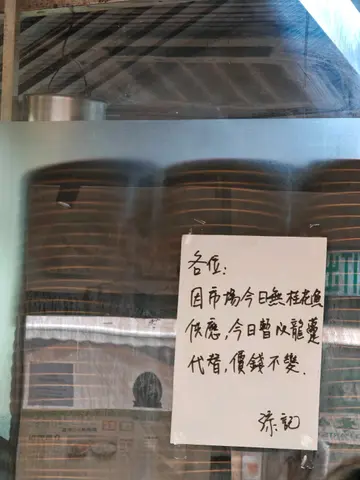 各位:
因市場今日無桂花魚
供應,今日暫以龍躉
代替,價錢不變.
添記